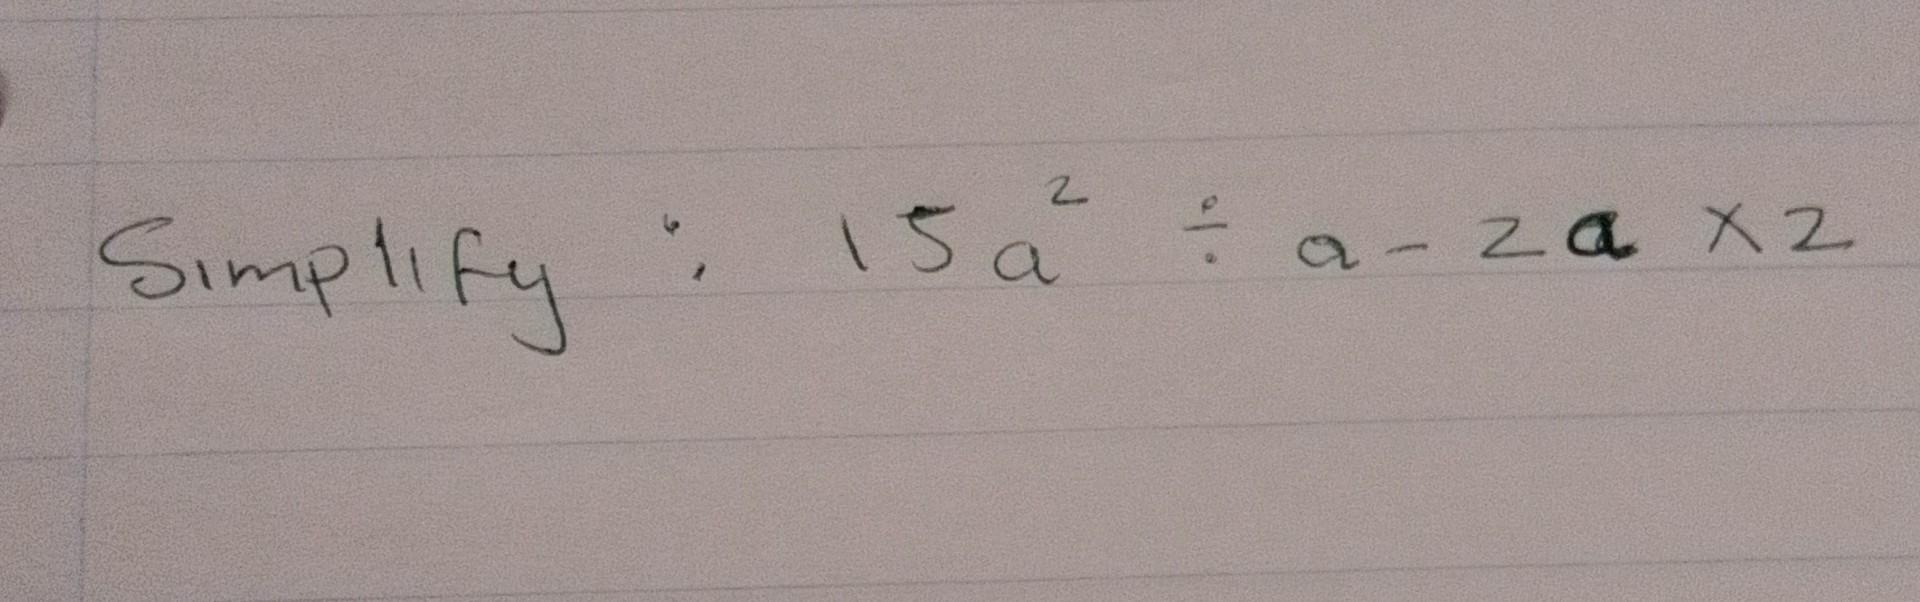 Simplify : 15a² ÷ a - 2a × 2